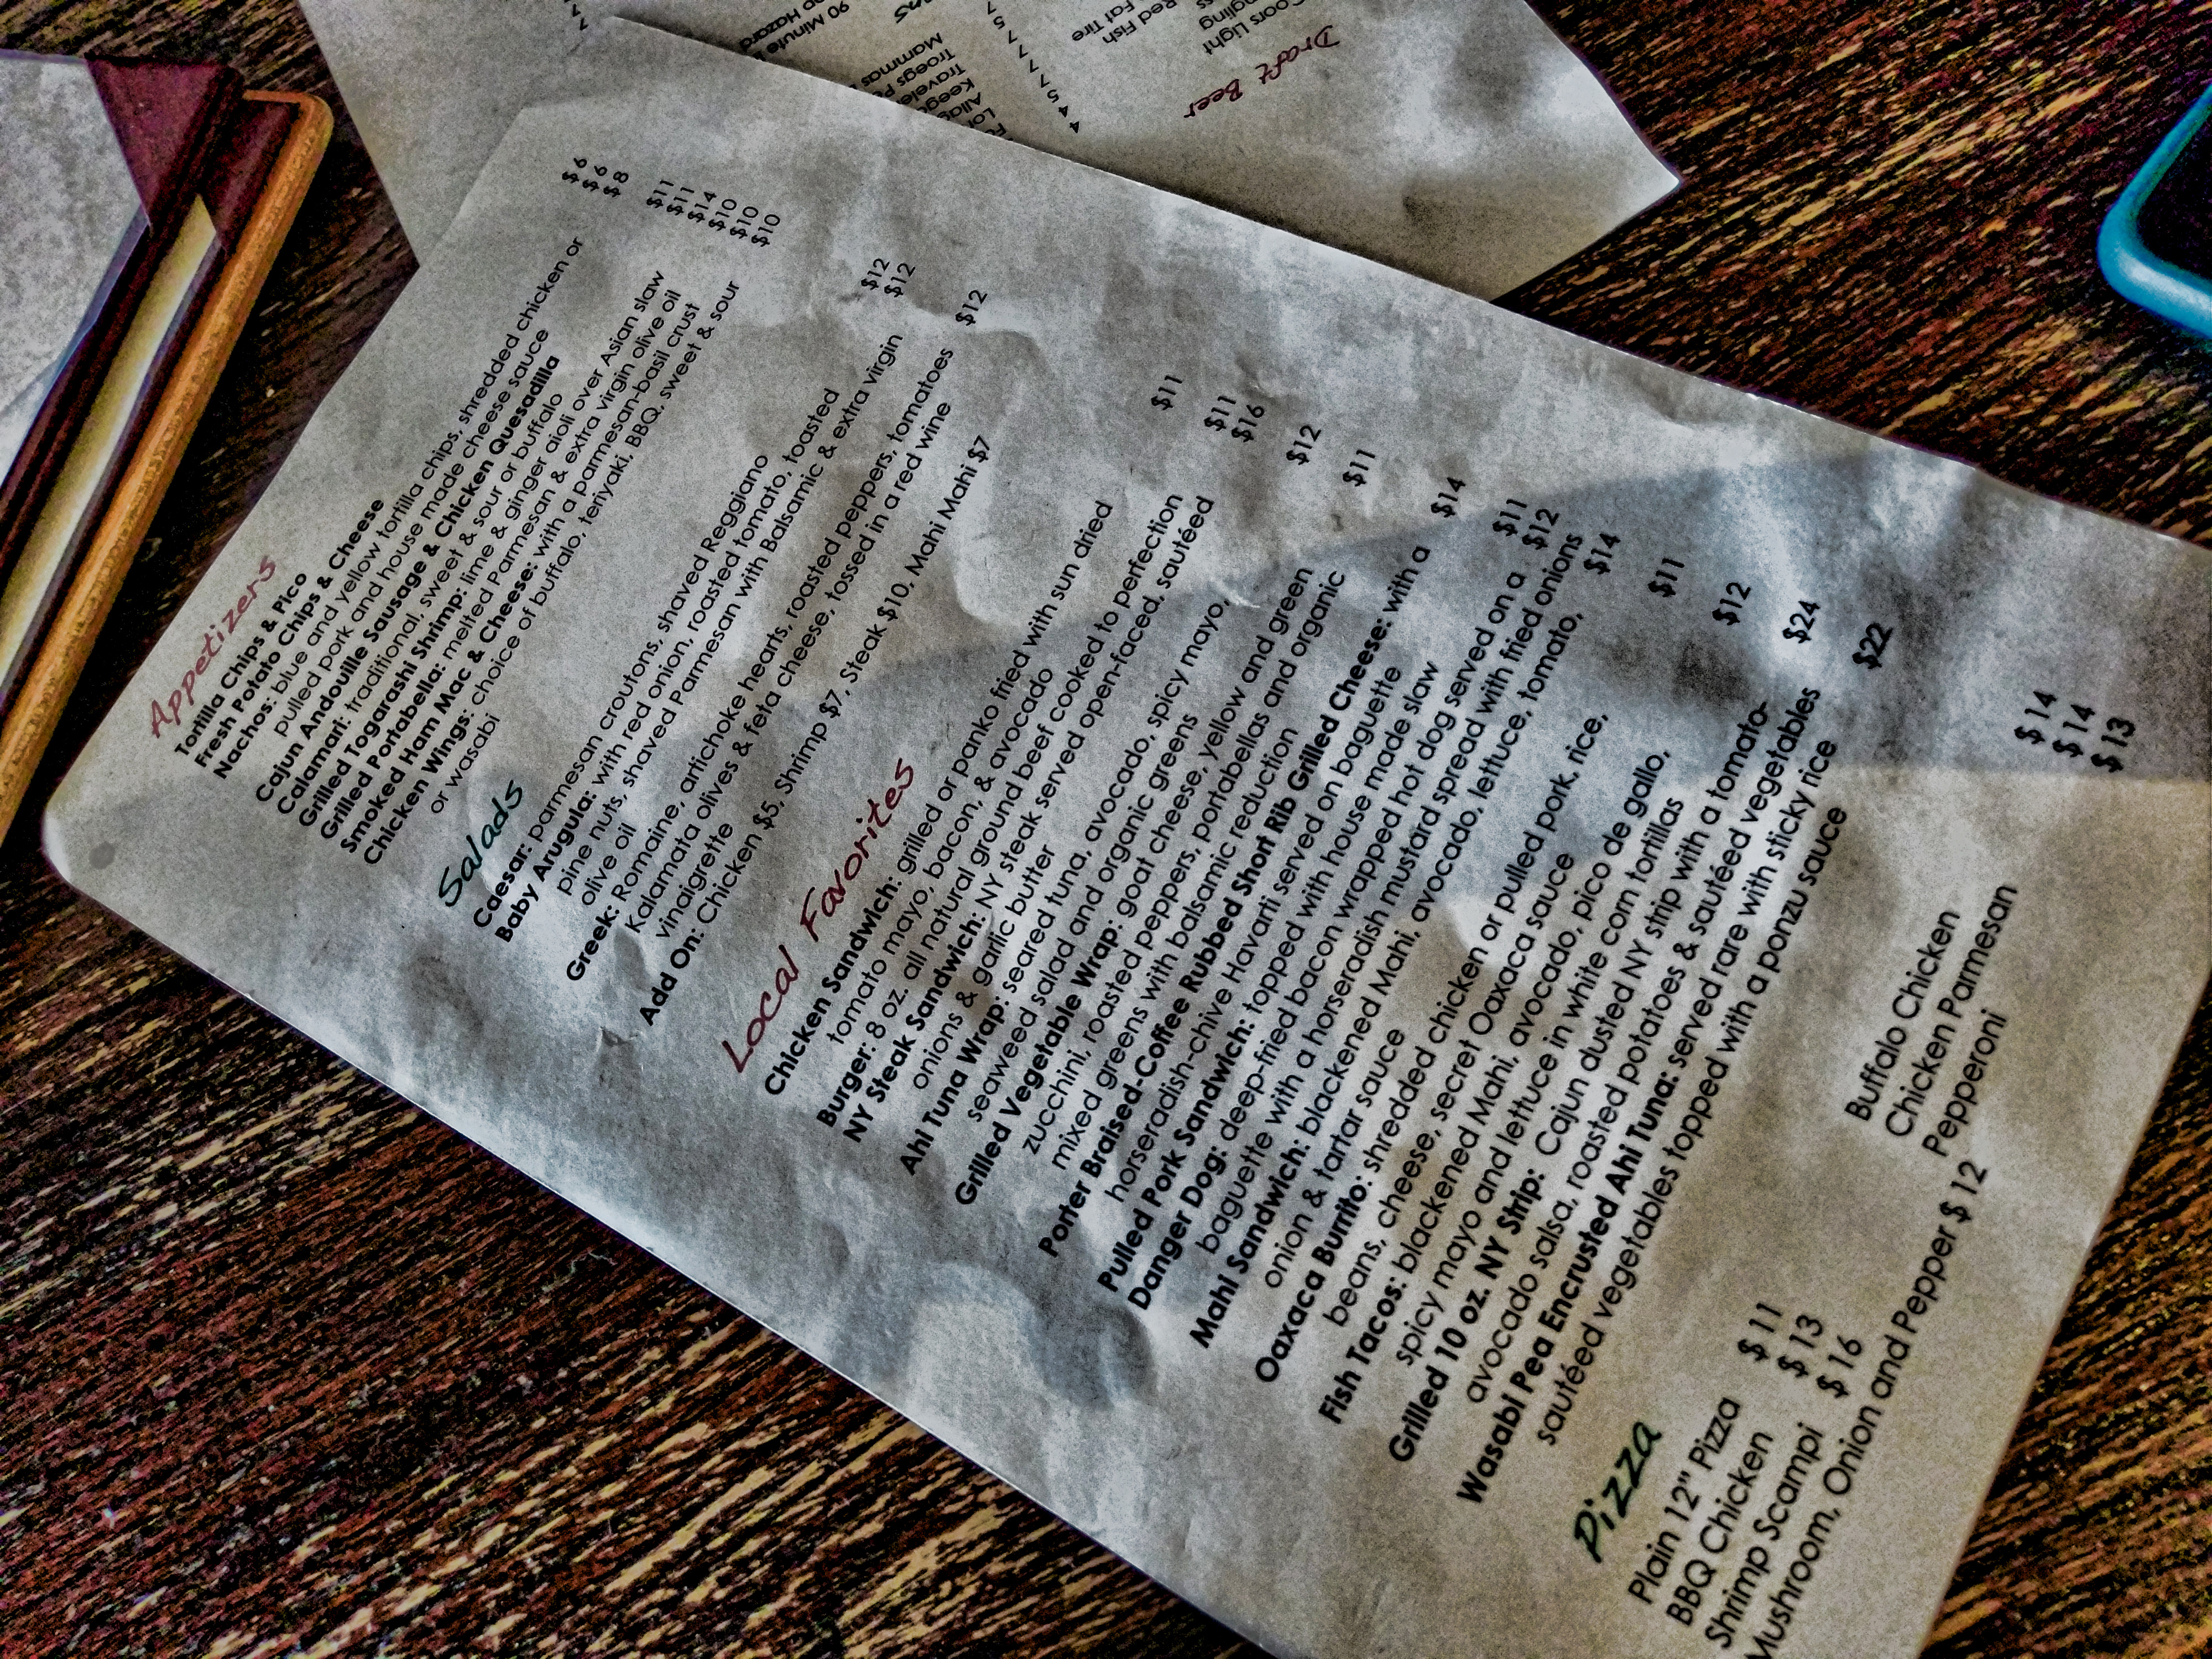 Appetizers
Tortilla Chips & Pico $ 6
Fresh Potato Chips & Cheese $ 6
Nachos: blue and yellow tortilla chips, shredded chicken or $ 8
pulled pork and house made cheese sauce
Cajun Andouille Sausage & Chicken Quesadilla $11
Calamari: traditional, sweet & sour or buffalo $11
Grilled Togarashi Shrimp: lime & ginger aioli over Asian slaw $14
Grilled Portabella: melted Parmesan & extra virgin olive oil $10
Smoked Ham Mac & Cheese: with a parmesan-basil crust $10
Chicken Wings: choice of buffalo, teriyaki, BBQ, sweet & sour $10
or wasabi
Salads
Caesar: parmesan croutons, shaved Reggiano $12
Baby Arugula: with red onion, roasted tomato, toasted $12
pine nuts, shaved Parmesan with Balsamic & extra virgin
olive oil
Greek: Romaine, artichoke hearts, roasted peppers, tomatoes $12
Kalamata olives & feta cheese, tossed in a red wine
vinaigrette
Add On: Chicken $5, Shrimp $7, Steak $10, Mahi Mahi $7
Local Favorites
Chicken Sandwich: grilled or panko fried with sun dried $11
tomato mayo, bacon, & avocado
Burger: 8 oz. all natural ground beef cooked to perfection $11
NY Steak Sandwich: NY steak served open-faced, sautéed $16
onions & garlic butter
Ahi Tuna Wrap: seared tuna, avocado, spicy mayo, $12
seaweed salad and organic greens
Grilled Vegetable Wrap: goat cheese, yellow and green $11
zucchini, roasted peppers, portabellas and organic
mixed greens with balsamic reduction
Porter Braised-Coffee Rubbed Short Rib Grilled Cheese: with a $14
horseradish-chive Havarti served on baguette
Pulled Pork Sandwich: topped with house made slaw $11
Danger Dog: deep-fried bacon wrapped hot dog served on a $12
baguette with a horseradish mustard spread with fried onions
Mahi Sandwich: blackened Mahi, avocado, lettuce, tomato, $14
onion & tartar sauce
Oaxaca Burrito: shredded chicken or pulled pork, rice, $11
beans, cheese, secret Oaxaca sauce
Fish Tacos: blackened Mahi, avocado, pico de gallo, $12
spicy mayo and lettuce in white corn tortillas
Grilled 10 oz. NY Strip: Cajun dusted NY strip with a tomato- $24
avocado salsa, roasted potatoes & sautéed vegetables
Wasabi Pea Encrusted Ahi Tuna: served rare with sticky rice $22
sautéed vegetables topped with a ponzu sauce
Pizza
Plain 12" Pizza $ 11
BBQ Chicken $ 13
Shrimp Scampi $ 16
Mushroom, Onion and Pepper $ 12
Buffalo Chicken $ 14
Chicken Parmesan $ 14
Pepperoni $ 13
Draft Beer
Coors Light 4
Red Fish
Fat Tire
Troegs
90 Minute
Hazard